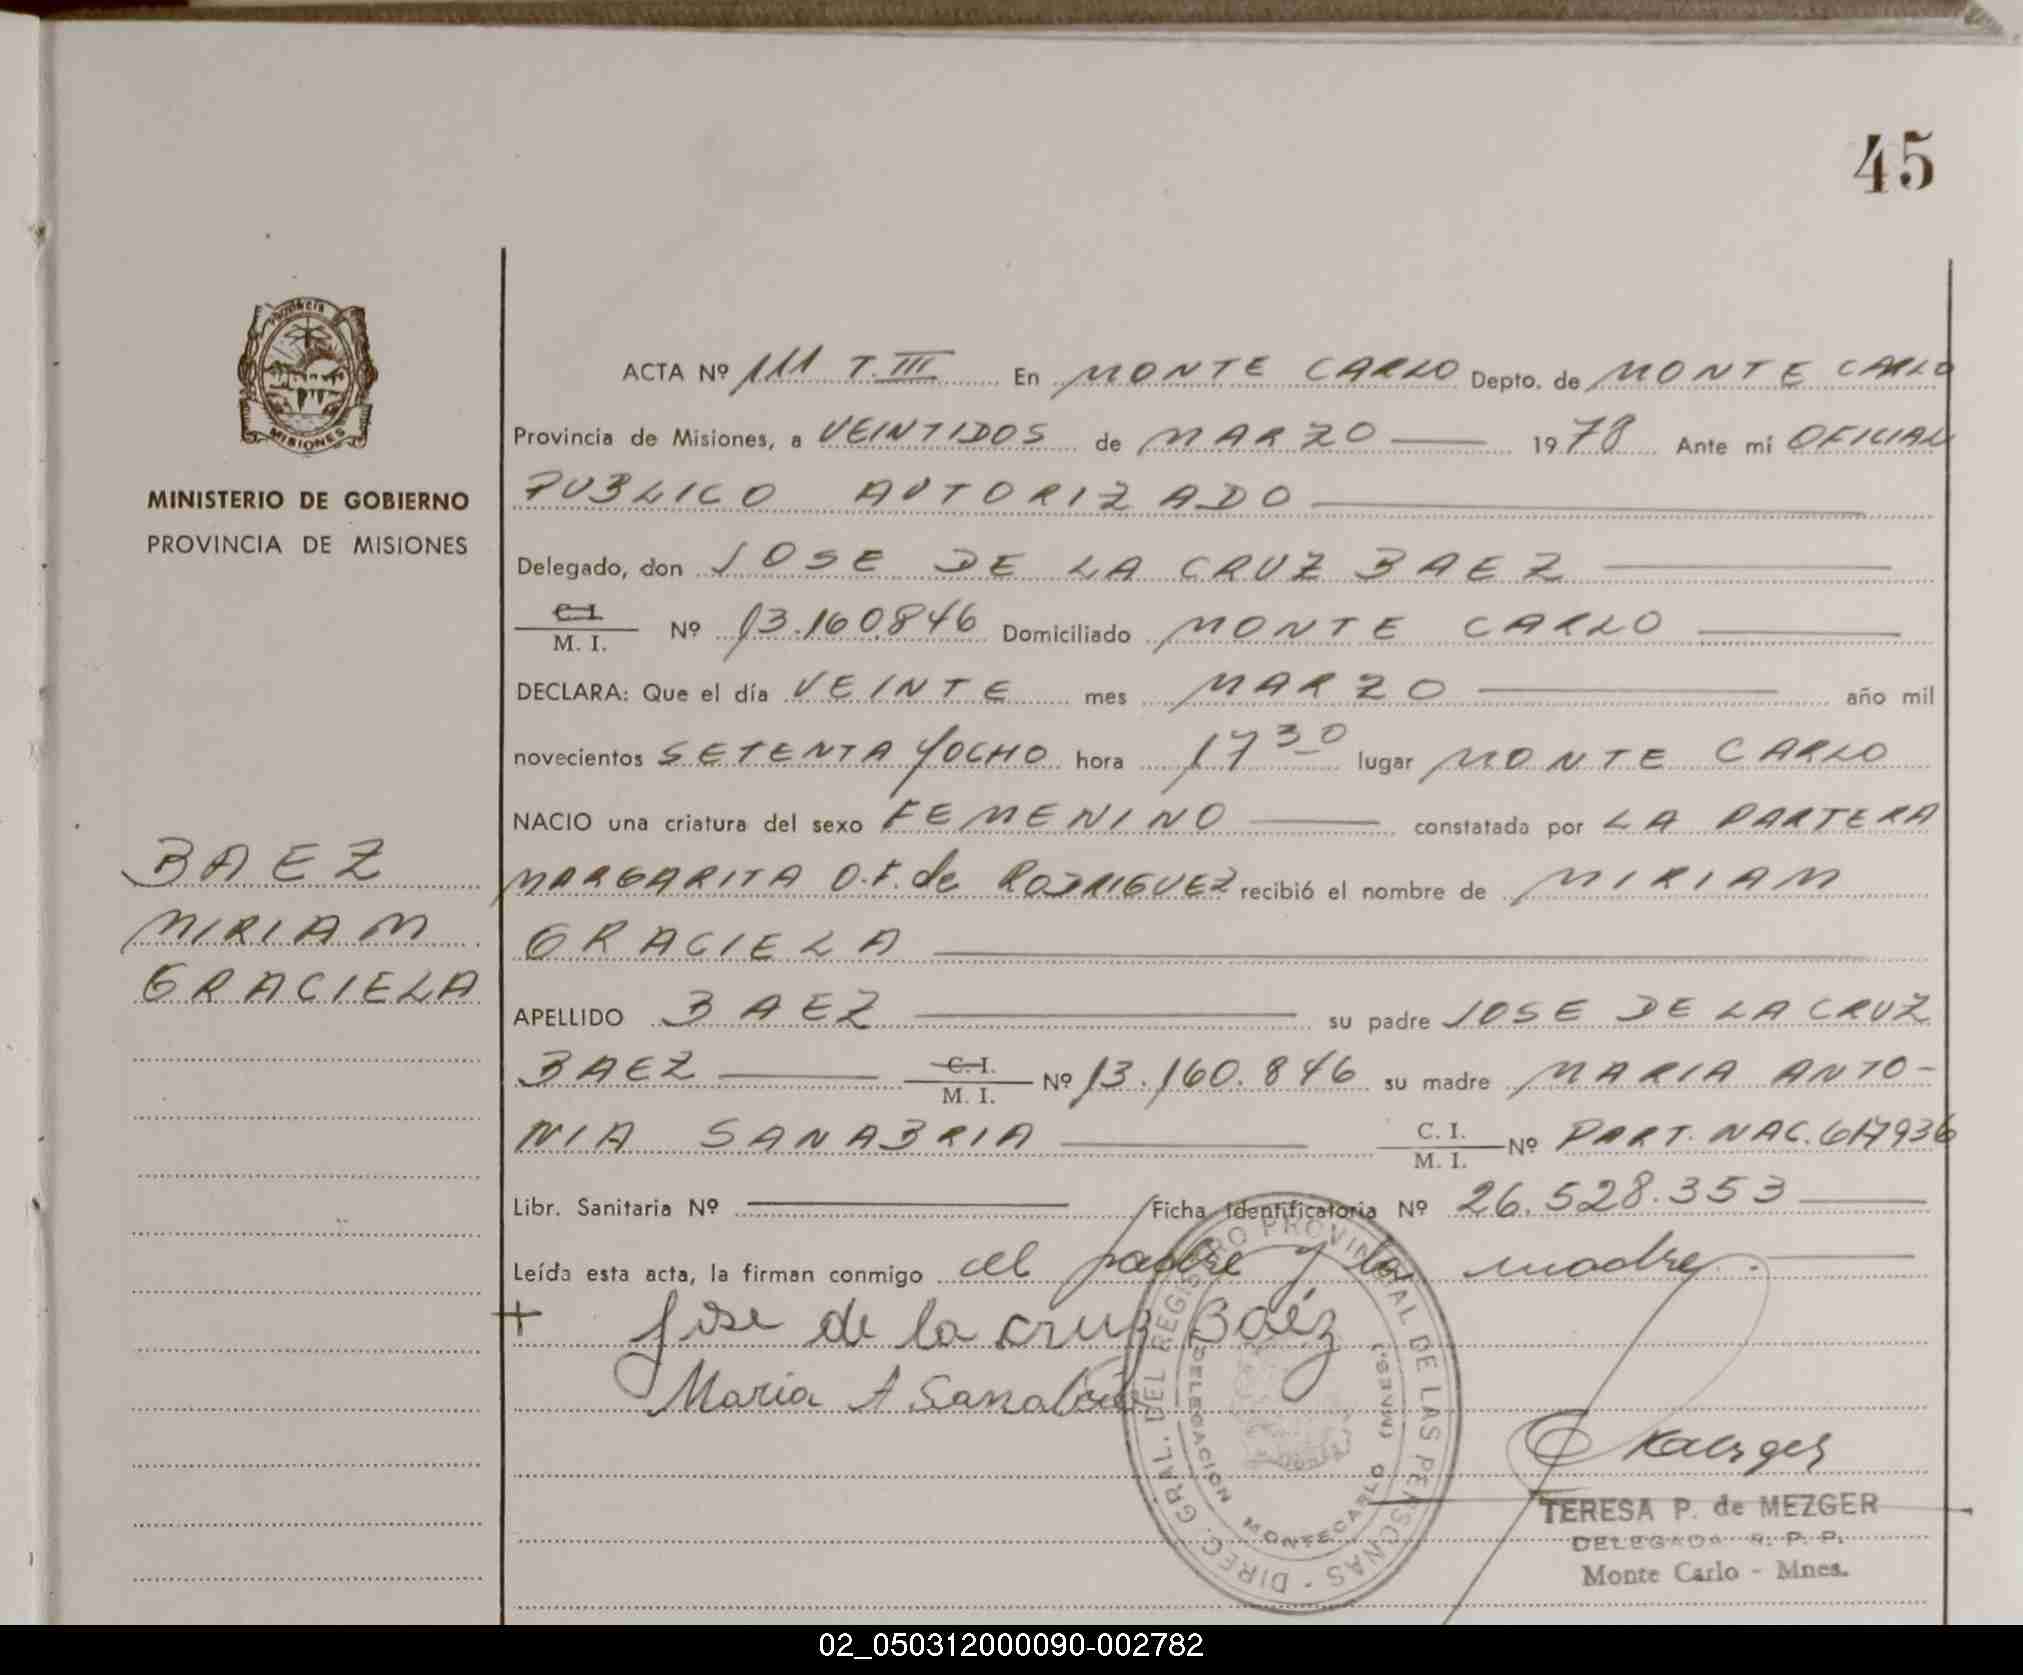 45
Provincia
MISIONES
MINISTERIO DE GOBIERNO
PROVINCIA DE MISIONES
BAEZ
MIRIAM
GRACIELA
ACTA Nº 111 T. III En MONTE CARLO Depto. de MONTE CARLO
Provincia de Misiones, a VEINTIDOS de MARZO 1978 Ante mí OFICIAL
PUBLICO AUTORIZADO
Delegado, don JOSE DE LA CRUZ BAEZ
C.I. M. I. Nº 13.160.846 Domiciliado MONTE CARLO
DECLARA: Que el día VEINTE mes MARZO año mil
novecientos SETENTA YOCHO hora 17 30 lugar MONTE CARLO
NACIO una criatura del sexo FEMENINO constatada por LA PARTERA
MARGARITA O.F. de RODRIGUEZ recibió el nombre de MIRIAM
GRACIELA
APELLIDO BAEZ su padre JOSE DE LA CRUZ
BAEZ C.I. M. I. Nº 13.160.846 su madre MARIA ANTO-
NIA SANABRIA C. I. M. I. Nº PART. NAC. 617936
Libr. Sanitaria Nº Ficha Identificatoria Nº 26.528.353
Leída esta acta, la firman conmigo el padre y la madre.
+ Jose de la cruz Baéz
Maria A Sanabria
DIREC. GRAL. DEL REGISTRO PROVINCIAL DE LAS PERSONAS
DELEGACION MONTECARLO (MNES.)
TERESA P. de MEZGER
DELEGADA R. P. P.
Monte Carlo - Mnes.
02_050312000090-002782